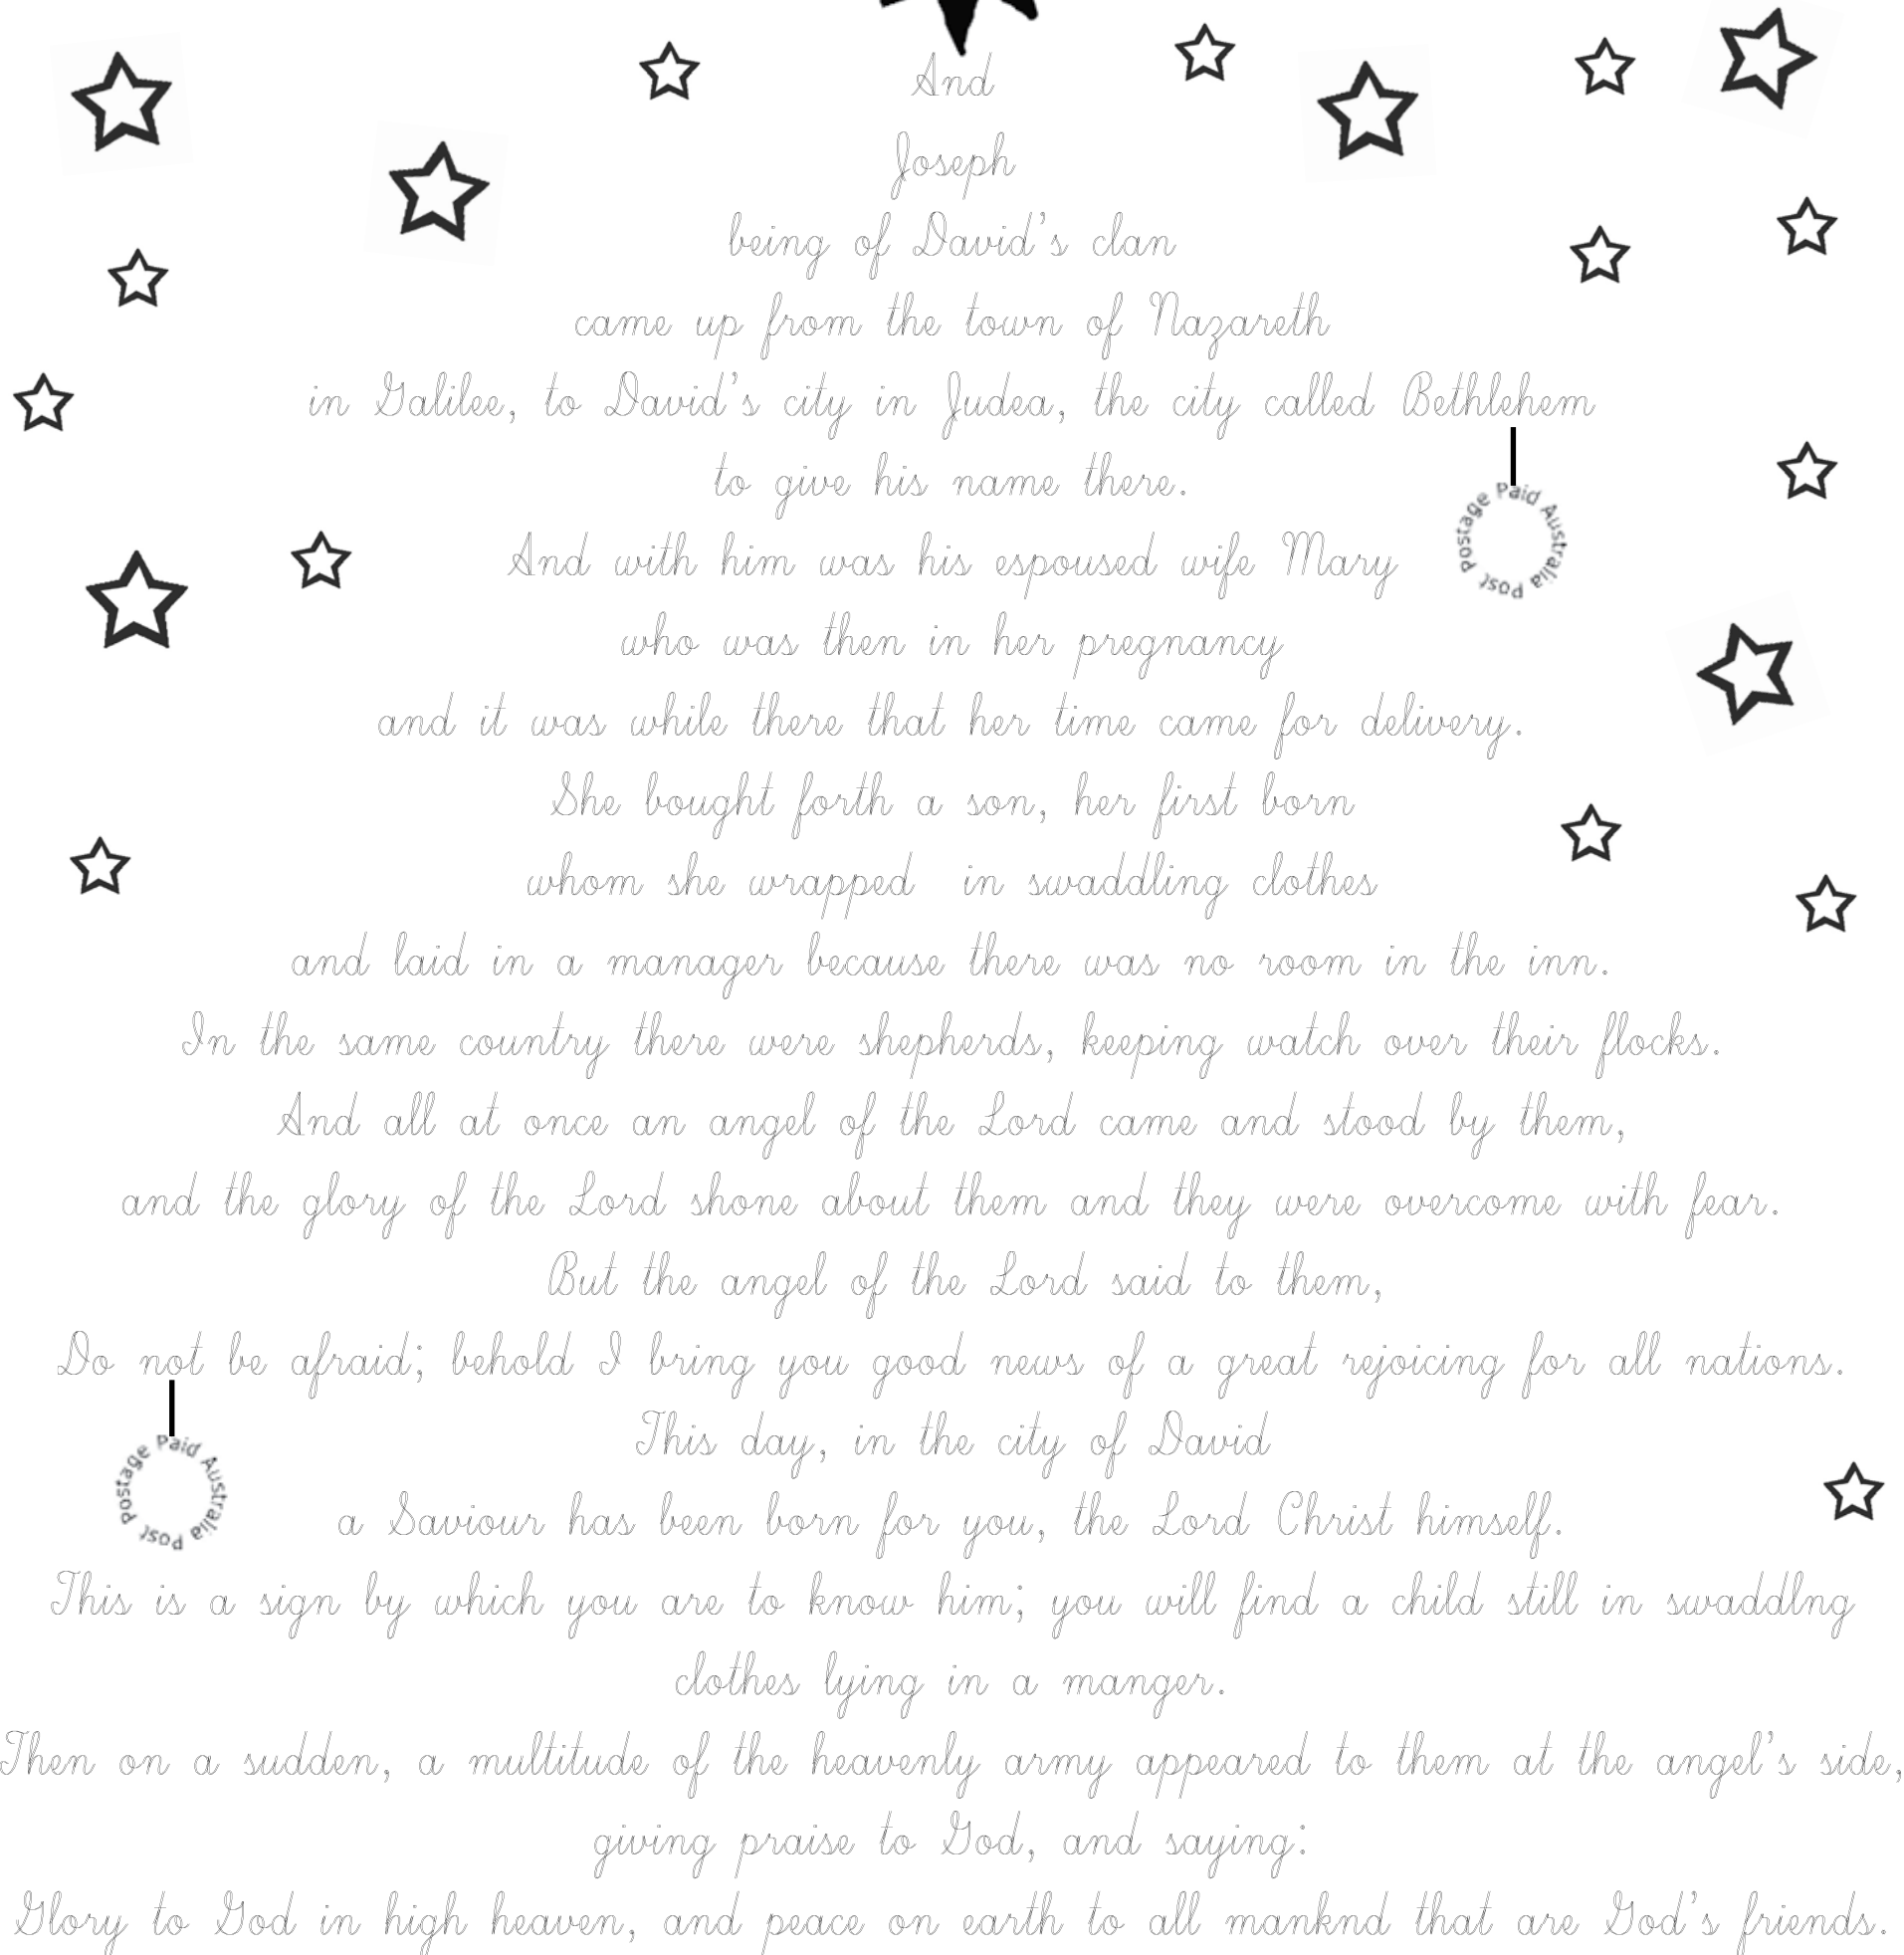 And
Joseph
being of David's clan
came up from the town of Nazareth
in Galilee, to David's city in Judea, the city called Bethlehem
to give his name there.
Postage Paid Australia Post
And with him was his espoused wife Mary
who was then in her pregnancy
and it was while there that her time came for delivery.
She bought forth a son, her first born
whom she wrapped in swaddling clothes
and laid in a manager because there was no room in the inn.
In the same country there were shepherds, keeping watch over their flocks.
And all at once an angel of the Lord came and stood by them,
and the glory of the Lord shone about them and they were overcome with fear.
But the angel of the Lord said to them,
Do not be afraid; behold I bring you good news of a great rejoicing for all nations.
This day, in the city of David
Postage Paid Australia Post
a Saviour has been born for you, the Lord Christ himself.
This is a sign by which you are to know him; you will find a child still in swaddlng
clothes lying in a manger.
Then on a sudden, a multitude of the heavenly army appeared to them at the angel's side,
giving praise to God, and saying:
Glory to God in high heaven, and peace on earth to all manknd that are God's friends.